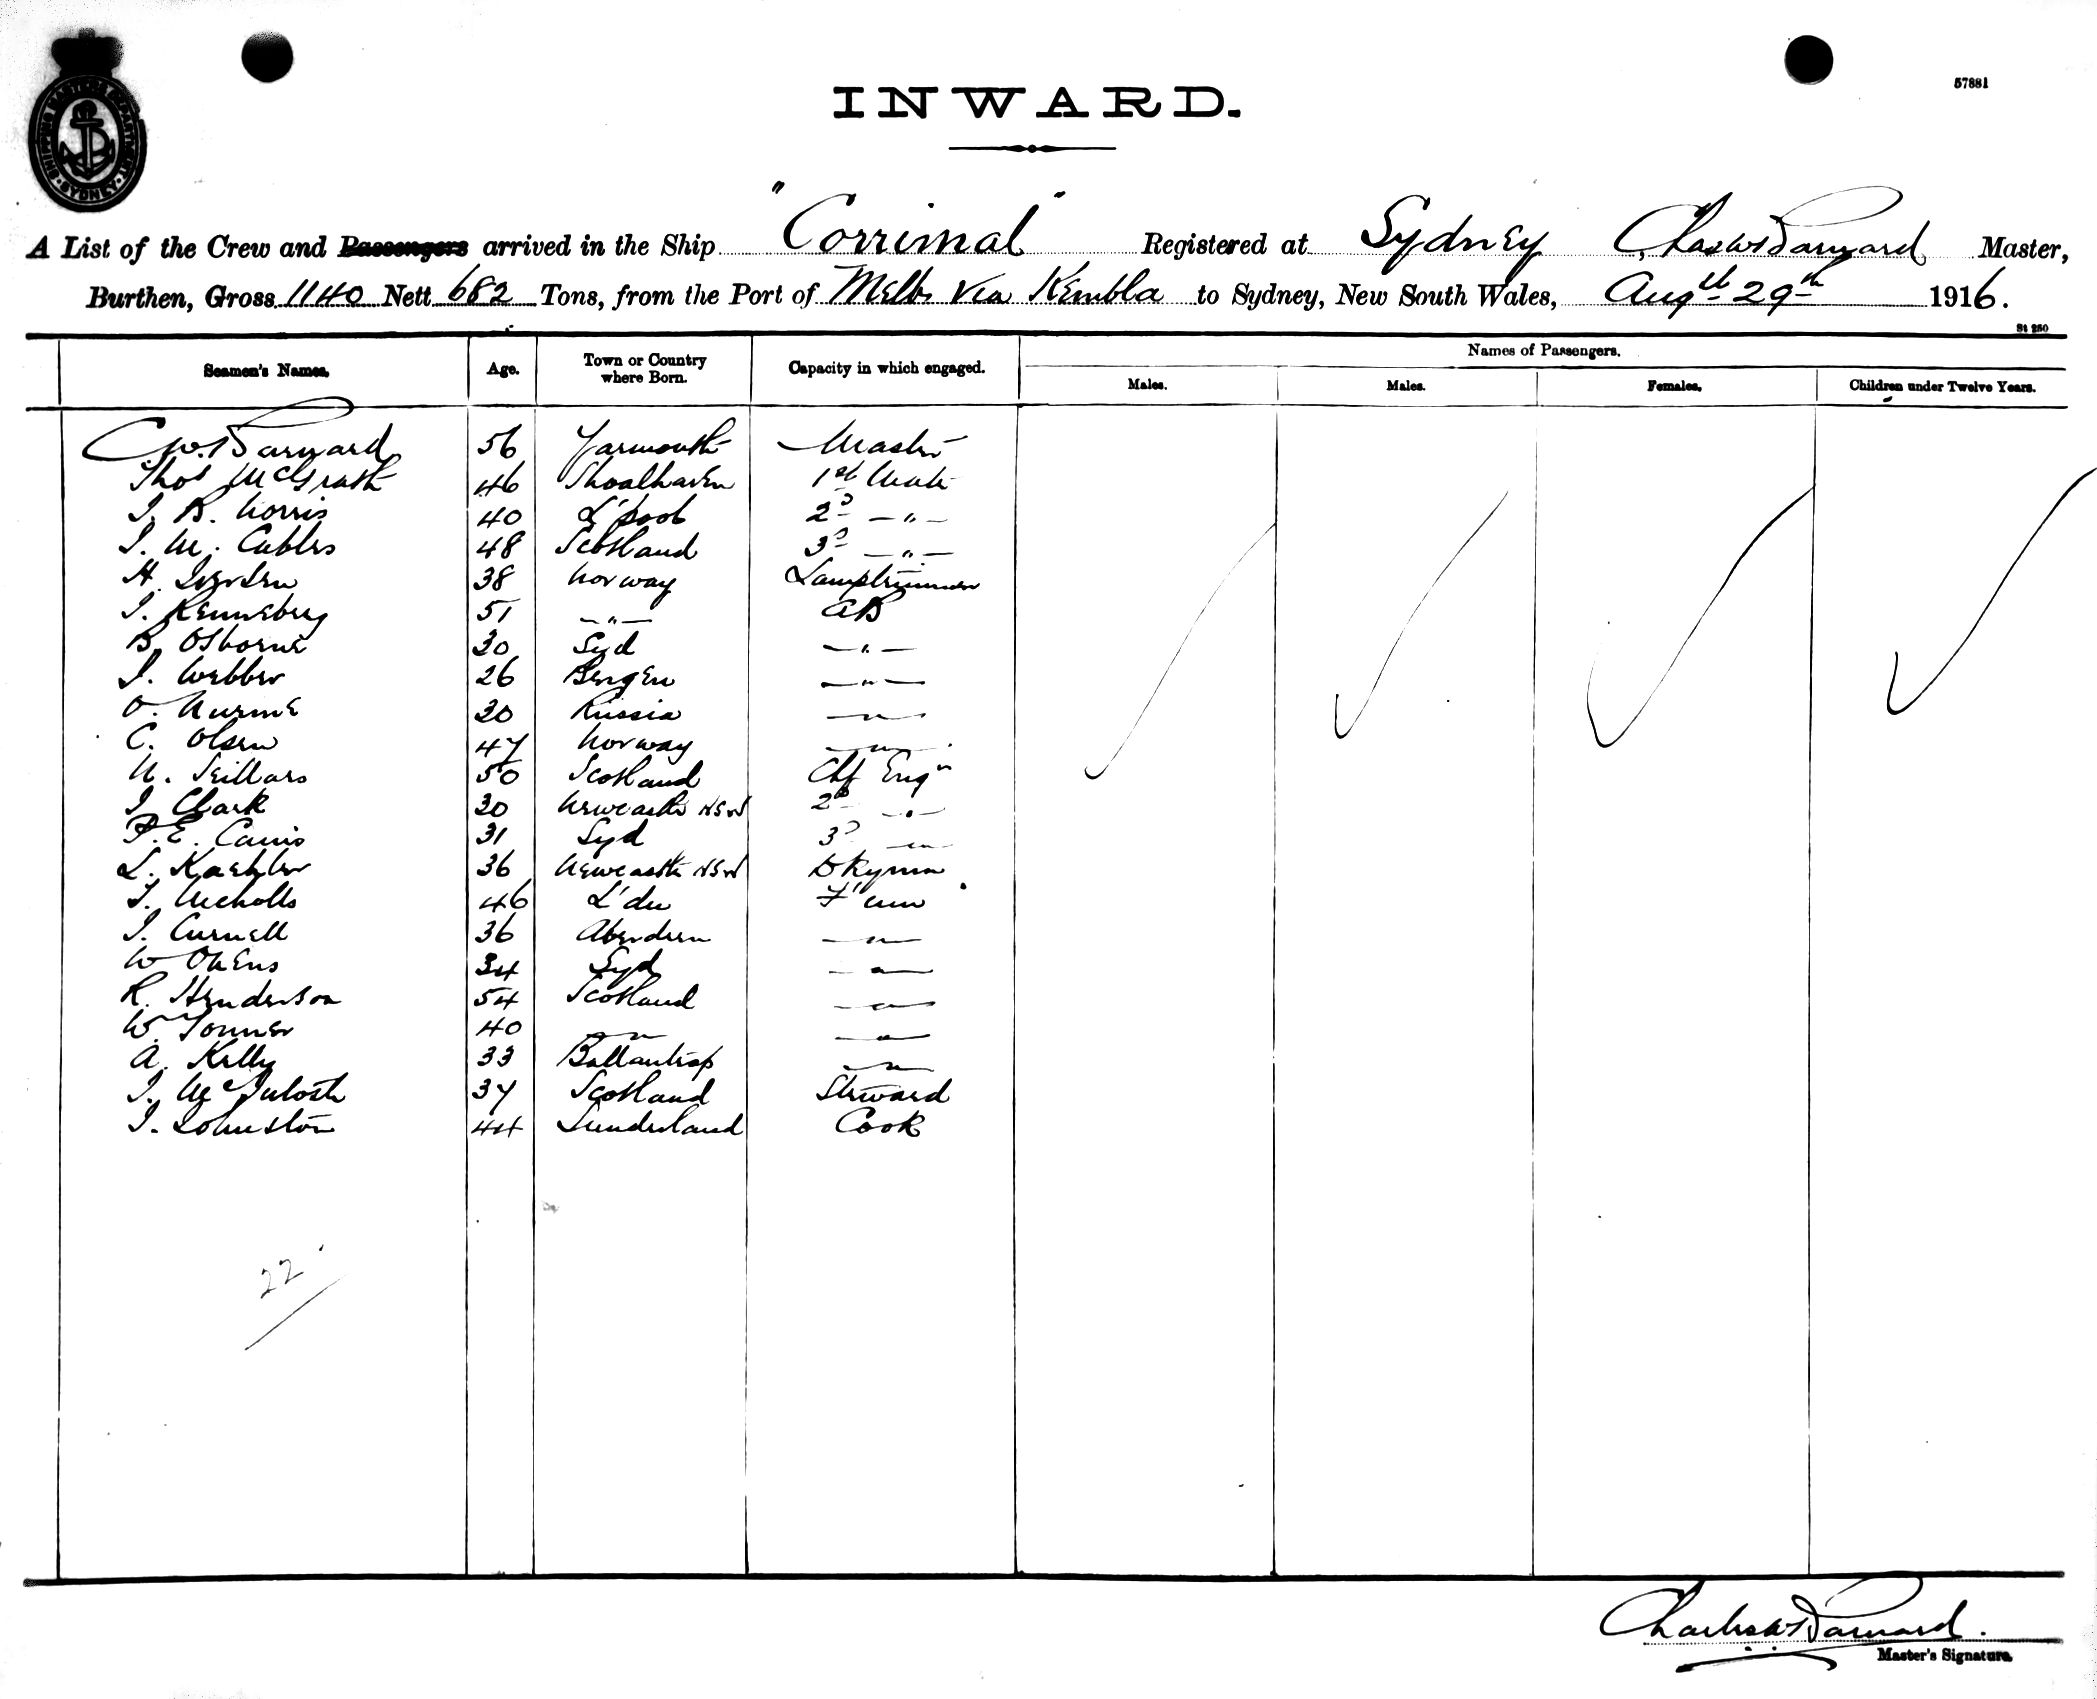 SHIPPING MASTERS DEPARTMENT SYDNEY
57881
INWARD.
A List of the Crew and Passengers arrived in the Ship "Corrimal" Registered at Sydney Chas W Barnard Master,
Burthen, Gross 1140 Nett 682 Tons, from the Port of Melb. via Kembla to Sydney, New South Wales, Augst 29th 1916.
St 250
Seamen's Names. Age. Town or Country where Born. Capacity in which engaged. Names of Passengers.
Males. Males. Females. Children under Twelve Years.
C.W. Barnard 56 Yarmouth Master
Thos McGrath 46 Shoalhaven 1st Mate
J. R. Norris 40 L'pool 2D — " —
J. M. Cables 48 Scotland 3D — " —
H. Iversen 38 Norway Lamptrimmer
J. Kenneberg 51 — " — AB
B. Osborne 30 Syd — " —
J. Webber 26 Bergen — " —
O. Nurme 30 Russia — " —
C. Olsen 47 Norway — " —
N. Sillars 50 Scotland Chf Engr
J Clark 30 Newcastle NSW 2D — " —
P.E. Cains 31 Syd 3D — " —
L. Kaehler 36 Newcastle NSW Dkyman
J. Nicholls 46 L'dn F'man
J. Curnell 36 Aberdeen — " —
W Owens 34 Syd — " —
R. Henderson 54 Scotland — " —
W. Tonner 40 — " — — " —
A. Kelly 33 — " —
J. McIntosh 37 Scotland Steward
J. Johnston 44 Sunderland Cook
22
Charles W Barnard.
Master's Signature.